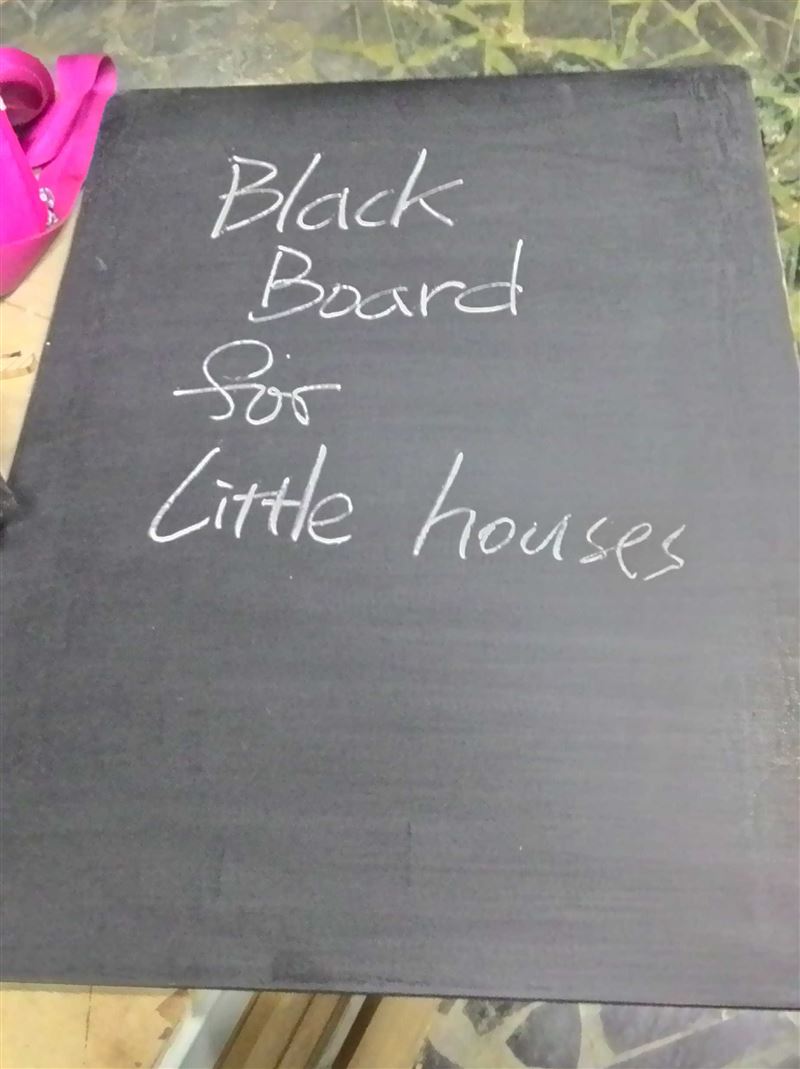 Black
Board
for
Little houses